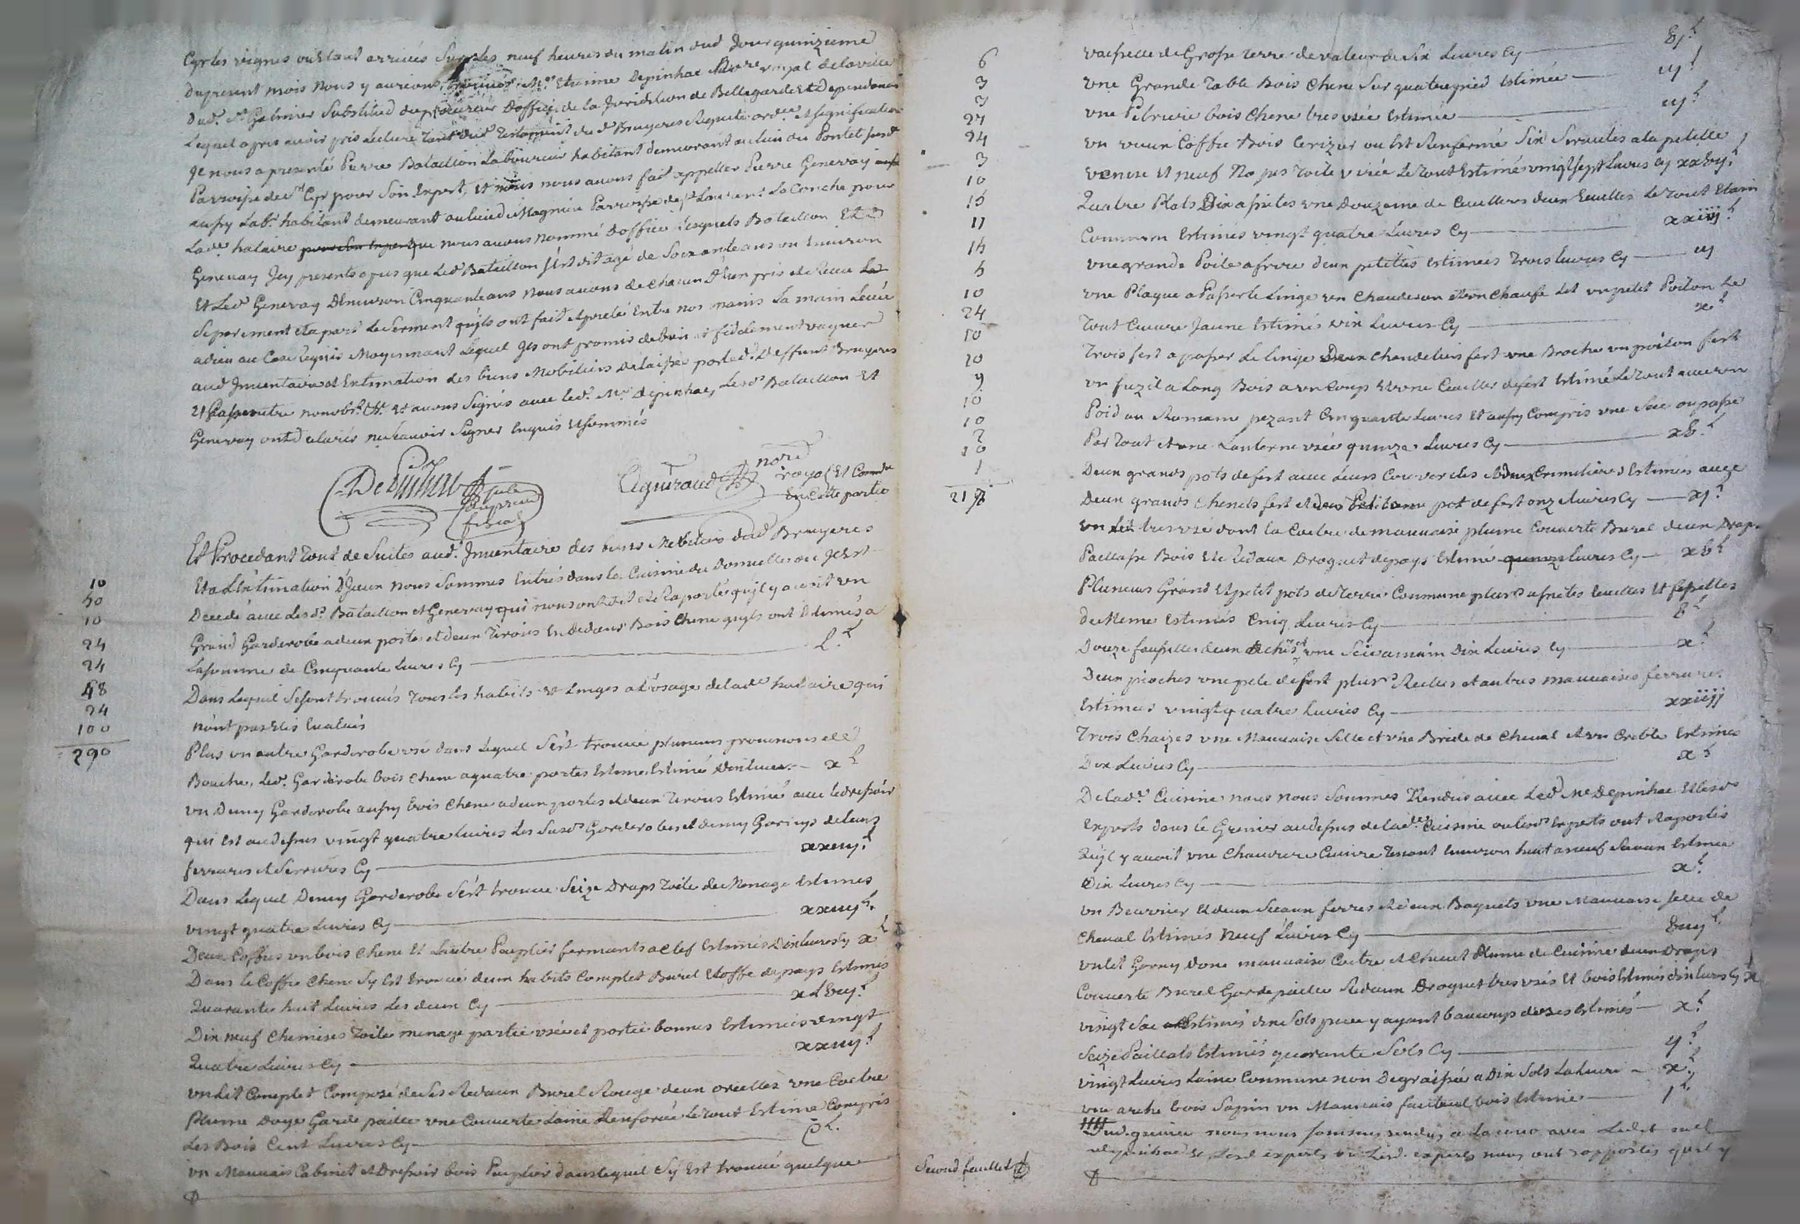 Cyr les vignes ou étant arrivés sur les neuf heures du matin dud. Jour quinzieme
Du present mois nous y aurions trouvés Me Etienne Depinhac
Dud. Sr Galmier Substitud du procureur Doffice de la Juridiction de Bellegarde et Dependances
Lequel apres avoir pris lecture dud. Testament du d. Bruyeres Requete ordce et signification
Je nous a presenté Pierre Bataillon Laboureur habitant demeurant au lieu du Pontet
Parroisse de St Cyr pour Son Expert, et nous nous avons fait appeller Pierre Genevay
aussy Labr habitant demeurant au lieu de Magnieu Parroisse de St Laurent La Conche pour
Lade hataire que nous avons nommé Doffice Lesquels Bataillon Et
Genevay Jcy presents apres que Led. Bataillon s'est dit agé de Soixante ans ou Environ
Et Led. Genevay D'environ Cinquante ans nous avons de chacun d'eux pris et Receu
Separement et a part Le Serment qu'ils ont fait et preté Entre nos mains La main Levée
a dieu au Cas Requis Moyennant Lequel Jls ont promis de bien et fidelement vaquer
aud. Jnventaire et Estimation des biens Mobiliers Delaissés par led. Deffunt Bruyeres
et avons Signés avec led. Me Depinhac, Lesd. Bataillon Et
Genevay ont declarés ne Scavoir Signer Enquis et sommés
Depinhac
Cigniraud nore
royal Et Comre
En cette partie
Et Procedant Tout de Suittes aud. Jnventaire des biens Mobiliers dud. Bruyeres
Et a L'estimation D'Jceux nous Sommes Entrés dans la Cuisine du Domicille ou Jl est
Decedé avec Lesds. Bataillon et Genevay qui nous ont dit et Raporté qu'jl y avoit un
Grand Garderobe a deux portes et deux Tiroirs En Dedans Bois Chene qu'jls ont Estimés a
10
50
La somme de Cinquante Livres Cy L l
10
24
24
48
24
100
290
Dans Lequel Se sont trouvés Tous les habits et Linges a L'usage de lade hataire qui
n'ont pas Etés Evalués
Plus un autre Garderobe usé dans Lequel S'est trouvé plusieurs provisions de
Bouche, Led. Garderobe bois chene a quatre portes Estimé Dix livres x l
un Demy Garderobe aussy bois Chene a deux portes et deux Tiroirs Estimé avec le dressoir
qui Est au dessus vingt quatre livres Les Susds Garderobes et demy Garnis de leurs
ferrures et Serrures Cy xxiiij l
Dans Lequel Demy Garderobe S'est trouvé Seize Draps Toile de Menage Estimés
vingt quatre Livres Cy xxiiij l
Deux Coffres un bois Chene Et L'autre Peuplier fermants a Clef Estimés Dix livres Cy x l
Dans le Coffre Chene Sy Est trouvé deux habits Complet Burel Etoffe de pays Estimés
Quarante huit Livres Les deux Cy xLviij l
Dix neuf Chemises Toile menage partie usée et partie bonnes Estimées vingt
Quatre Livres Cy xxiiij l
un Lit Complet Composé de Ses Redaux Burel Rouge deux oreilles une Coetre
Plume Doye Garde paille une Couverte Laine Renforcée Le Tout Estimé Compris
Les Bois Cent Livres Cy C l
un Mauvais Cabinet et Dressoir bois Peuplier dans lequel Sy Est trouvé quelque
Second feuillet
6
3
3
27
24
3
10
15
11
15
5
10
24
10
10
9
10
10
2
10
1
vaisselle de Grosse Terre de valeur de Six Livres Cy vj l
une Grande Table Bois Chene Sur quatre pied Estimée iij l
une Petriere bois Chene tres usée Estimée iij l
un vieux Coffre Bois Cerizier ou Est Renfermé Six Serviettes a la petite
venise Et neuf Napes Toile usée Le Tout Estimé vingt Sept Livres Cy xxvij l
Quatre Plats Dix assiettes une Douzeine de Cuilleres deux Ecuelles Le Tout Etain
Commun Estimés vingt quatre Livres Cy xxiiij l
une grande Poile a frire deux petittes Estimées Trois Livres Cy iij
une Plaque a Passer le Linge un Chauderon Et un Chaufe Lit un petit Poilon Le
Tout Cuivre Jaune Estimés Dix Livres Cy x l
Trois fert a passer Le Linge Deux Chandeliers fert une Broche un poilon fert
un fuzil a Long Bois a un Coup Et une Cuillere de fert Estimé Le Tout avec un
Poid au Romain pezant Cinquante Livres Et aussy Compris une Scie ou passe
Par Tout et une Lanterne usée quinze Livres Cy xv l
Deux grands pots de fert avec Leurs Couvercles Et deux Crimilieres Estimés onze
Deux grands Chenets fert et deux pot de fert onze Livres Cy xj l
un Lit tres usé dont la Coetre de mauvaise plume Couverte Burel deux Draps
Paillasse Bois Et Redaux Droguet de pays Estimé quinze Livres Cy xv l
Plusieurs Grand Et petit pots de Terre Commune plusrs assiettes Ecuelles Et
De Meme Estimés Cinq Livres Cy v l
Douze faussilles deux haches et une Scie a main Dix Livres Cy x l
Deux pioches une pele de fert plusrs Reilles et autres mauvaises ferrures
Estimés vingt quatre Livres Cy xxiiij
Trois Chaizes une Mauvaise Selle et une Bride de Cheval et un Crible Estimés
Dix Livres Cy x l
De lade Cuisine nous nous Sommes Rendus avec Led. Me Depinhac Et lesds
Experts dans le Grenier au dessus de lade Cuisine ou lesd. Experts ont Raportés
Qu'jl y avoit une Chaudiere Cuivre Tenant Environ huit a neuf Seaux Estimée
Dix Livres Cy x l
un Beurrier Et deux Seaux ferres et deux Baquets une Mauvaise Selle de
Cheval Estimés Neuf Livres Cy viiij l
un Lit Garny Done mauvaise Coetre et Chevet Plume de Cuisine deux Draps
Couverte Burel Garde paille Redaux Droguet tres usés Et bois Estimés dix livres Cy x
vingt Sac Estimés dix Sols piece y ayant baucoup duzes Estimés x l
Seize Paillats Estimés quarante Sols Cy ij l
vingt Livres Laine Commune non Degraissée a Dix Sols La Livre x l
une arche bois Sapin un Mauvais fauteuil bois Estimée 1 l
Dud. grenier nous nous sommes rendus a la cave avec Ledit
Depinhac Et Lesd. experts ou Lesd. experts nous ont rapportés quil y